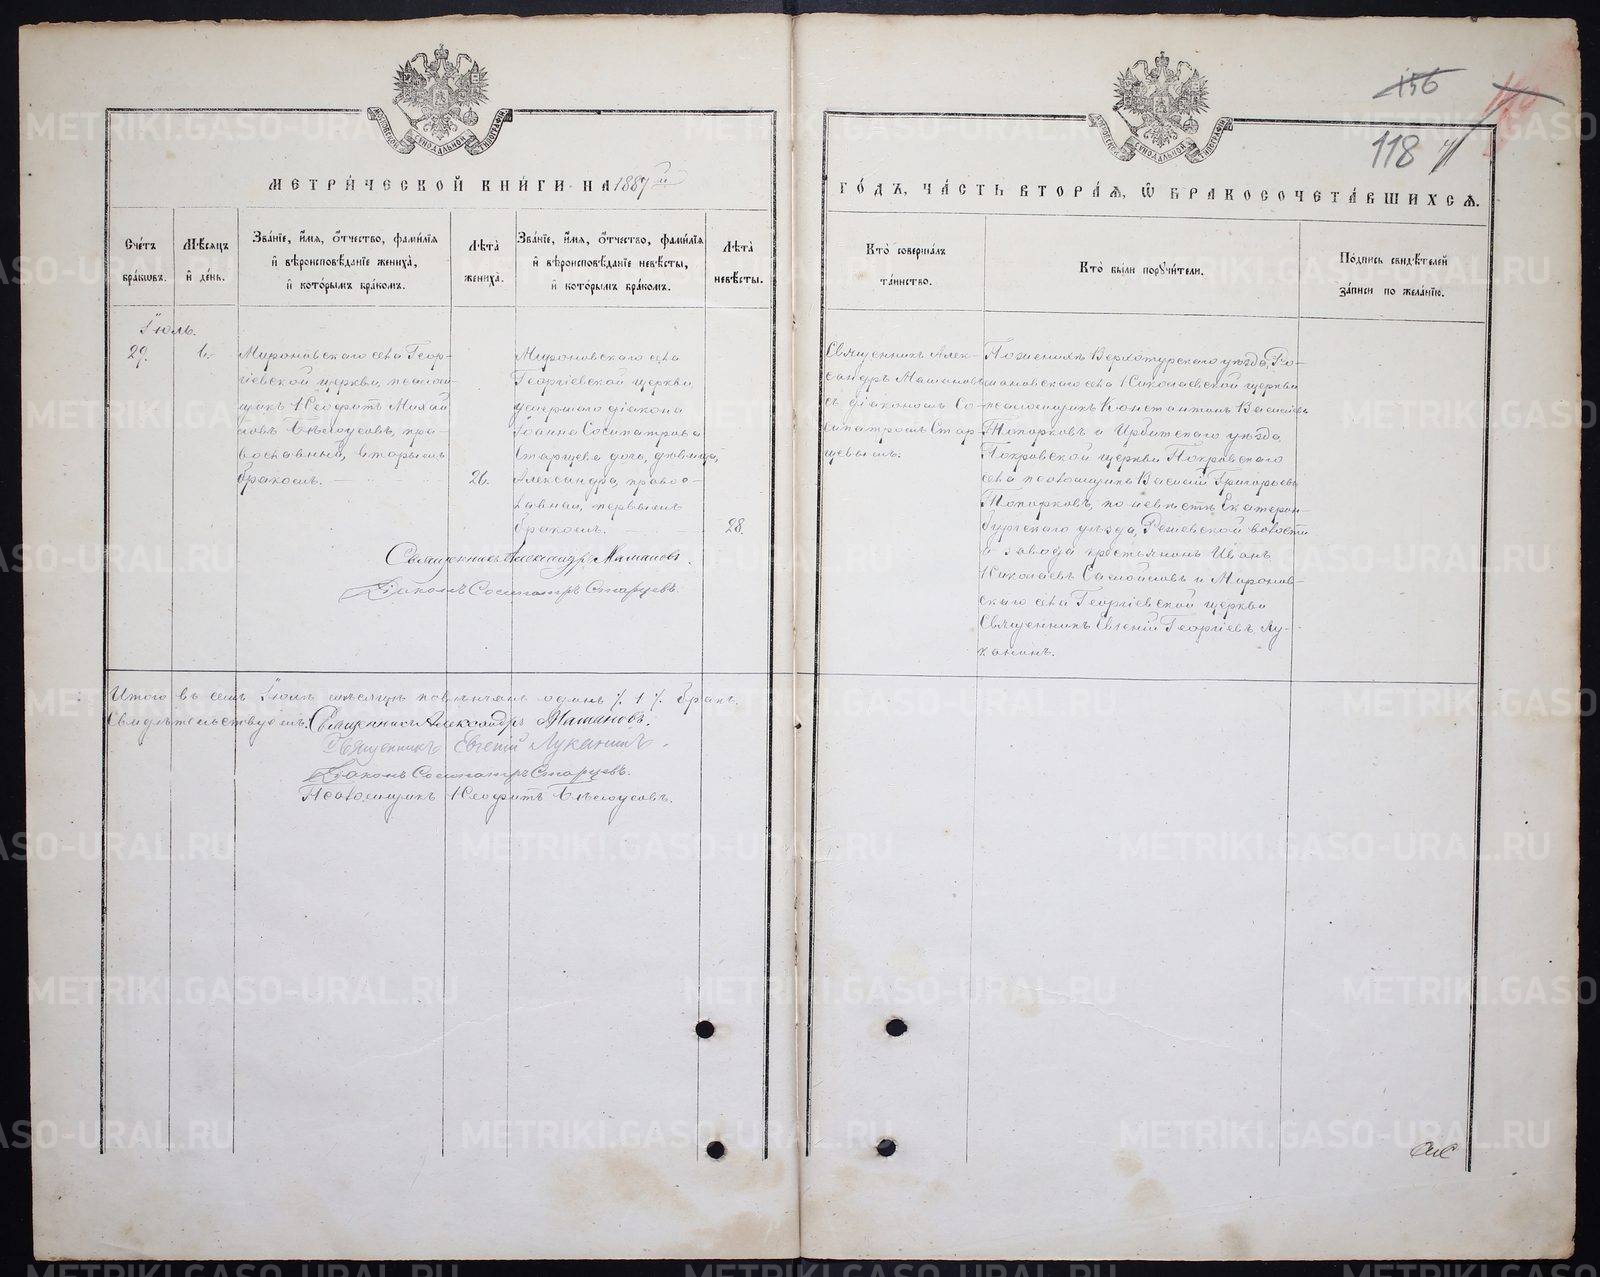 156
118
МЕТРИЧЕСКОЙ КНИГИ НА 1887й
ГОДЪ, ЧАСТЬ ВТОРАЯ, Ѡ БРАКОСОЧЕТАВШИХСЯ.
Счетъ браковъ.
Мѣсяцъ и день.
Званіе, имя, отчество, фамилія и вѣроисповѣданіе жениха, и которымъ бракомъ.
Лѣта жениха.
Званіе, имя, отчество, фамилія и вѣроисповѣданіе невѣсты, и которымъ бракомъ.
Лѣта невѣсты.
Кто совершалъ таинство.
Кто были поручители.
Подпись свидѣтелей записи по желанію.
Іюль.
29.
Мироновскаго села Геор-
гіевской церкви, псалом-
щикъ Неофитъ Михай
ловъ Бѣлоусовъ, пра-
вославный, вторымъ
бракомъ.
26.
Мироновскаго села
Георгіевской церкви
умершаго діакона
Іоанна Сосипатрова
Старцева дочь, дѣвица,
Александра, право-
славная, первымъ
бракомъ.
28.
Священникъ Алек-
сандръ Мамановъ
съ діакономъ Со-
сипатромъ Стар-
цевымъ.
По женихѣ Верхотурскаго уѣзда, Ро-
мановскаго села Николаевской церкви
псаломщикъ Константинъ Васильевъ
Топорковъ и Ирбитскаго уѣзда,
Покровской церкви Покровскаго
села псаломщикъ Василій Григорьевъ
Топорковъ, по невѣстѣ Екатерин-
бургскаго уѣзда, Режевской волости
и завода крестьянинъ Иванъ
Николаевъ Самойловъ и Миронов-
скаго села Георгіевской церкви
Священникъ Евгеній Георгіевъ Лу-
канинъ.
Священникъ Александръ Мамановъ.
Діаконъ Сосипатръ Старцевъ.
Итого въ семъ Іюлѣ мѣсяцѣ повѣнчанъ одинъ ٪ 1 ٪ бракъ.
Свидѣтельствуемъ: Священникъ Александръ Мамановъ.
Священникъ Евгеній Луканинъ.
Діаконъ Сосипатръ Старцевъ.
Псаломщикъ Неофитъ Бѣлоусовъ.
МОСКОВСКОЙ СИНОДАЛЬНОЙ ТИПОГРАФІИ
МОСКОВСКОЙ СИНОДАЛЬНОЙ ТИПОГРАФІИ
METRIKI.GASO-URAL.RU